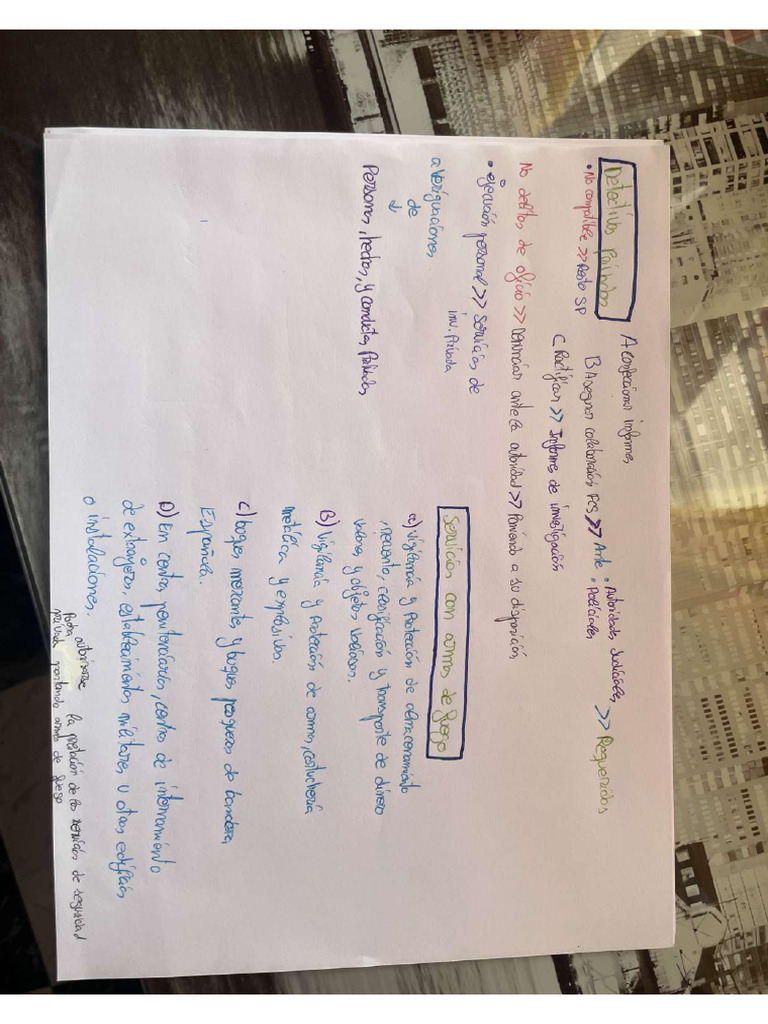 Detectives Privados
• No compatible >> Resto SP
A Confeccionar informes
B Asegurar colaboración FCS >> Ante
• Autoridades Judiciales
• Policiales
>> Requeridos
C Ratificar >> Informes de investigación
No delitos de oficio >> Denunciar ante la autoridad >> Poniendo a su disposición
• ejecución personal >> Servicios de
inv. Privada
averiguaciones
de
↓
Personas, hechos, y conductas Privadas
Servicios con armas de fuego
a) Vigilancia y Protección de almacenamiento
, recuento, clasificación y transporte de dinero
valores y objetos valiosos.
B) Vigilancia y Protección de armas, cartuchería
metálica y explosivos.
C) buques mercantes, y buques pesqueros de bandera
Española.
D) En centros penitenciarios, centros de internamiento
de extranjeros, establecimientos militares u otros edificios
o instalaciones.
Podrá autorizarse la prestación de los servicios de seguridad
privada portando armas de fuego